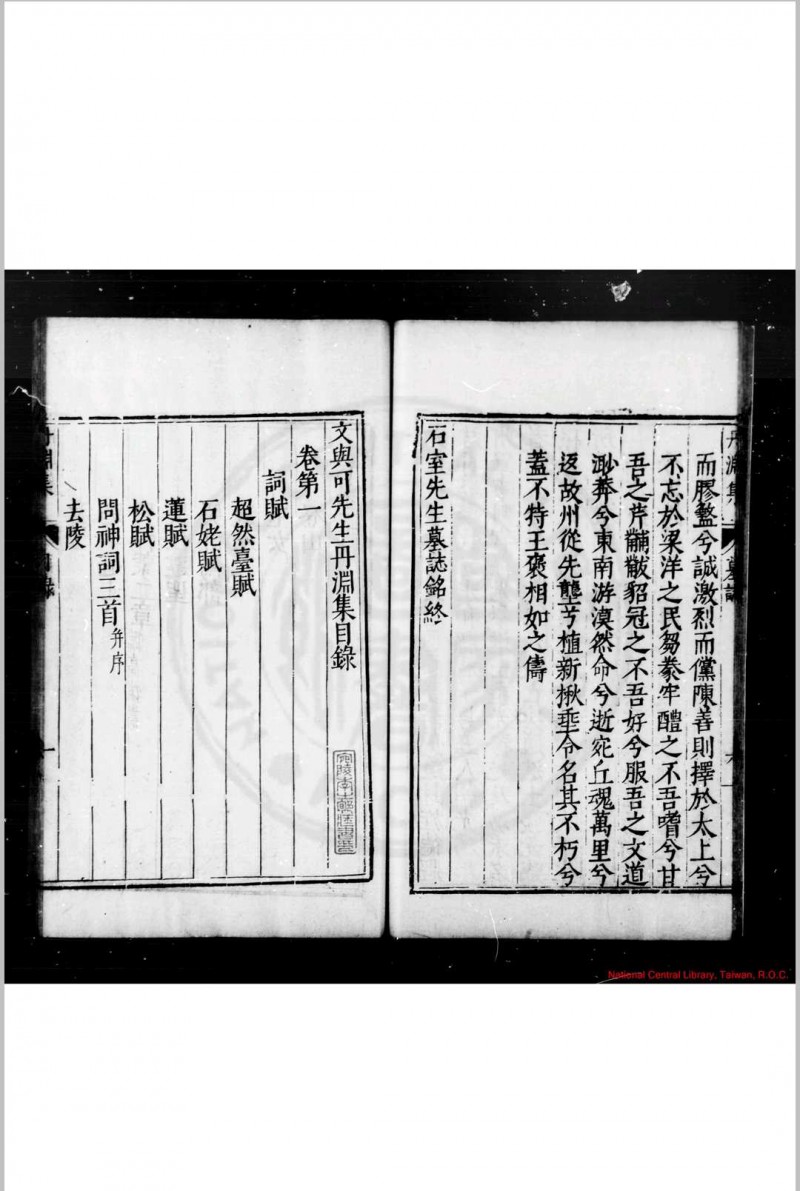 而膠盭兮誠激烈而儻陳善則擇於太上兮
不忘於梁洋之民芻豢牢醴之不吾嗜兮甘
吾之芹黼黻貂冠之不吾好兮服吾之文道
渺莽兮東南游溘然命兮逝宛丘魂萬里兮
返故州從先壟兮植新楸垂令名其不朽兮
蓋不特王褒相如之儔
石室先生墓誌銘終
丹淵集
墓誌
六
文與可先生丹淵集目錄
卷第一
詞賦
超然臺賦
石姥賦
蓮賦
松賦
問神詞三首 并序
去陵
丹淵集
目錄
一
National Central Library, Taiwan, R.O.C.